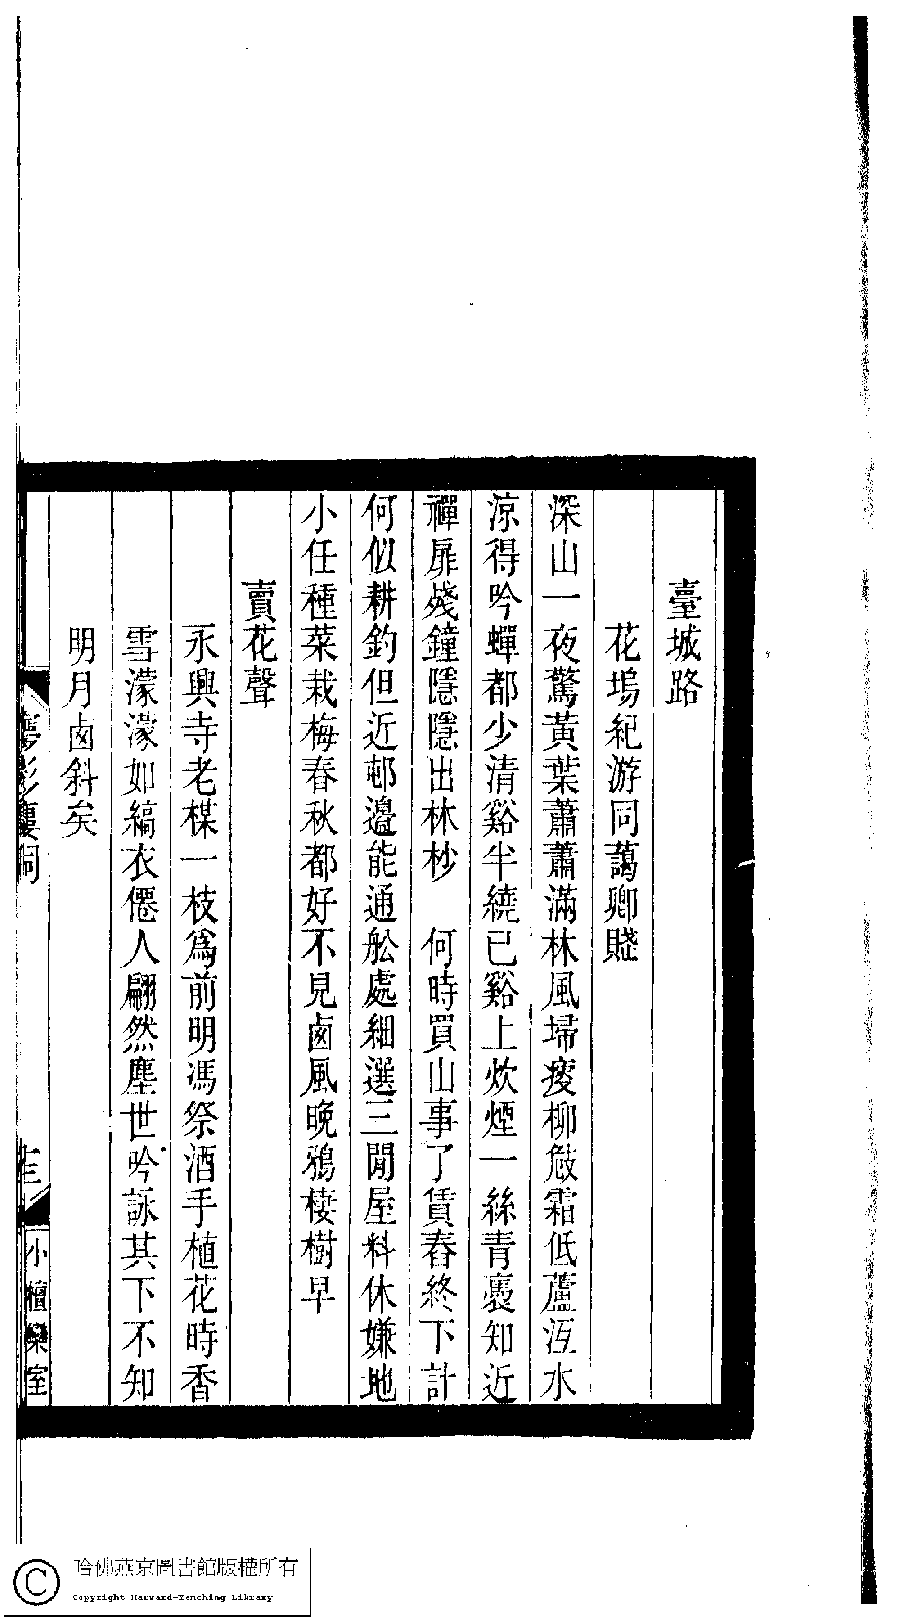 臺城路
花塢紀游同藹卿賤
深山一夜驚黃葉蕭蕭滿林風埽瘦柳敧霜低蘆沍水
涼得吟蟬都少清谿半繞已谿上炊煙一絲青褭知近
禪扉殘鐘隱隱出林杪　何時買山事了賃舂終下計
何似耕釣但近邨邊能通舩處細選三閒屋料休嫌地
小任種菜栽梅春秋都好不見鹵風晚鴉棲樹早
賣花聲
永興寺老楳一枝爲前明馮祭酒手植花時香
雪濛濛如縞衣僊人翩然塵世吟詠其下不知
明月鹵斜矣
夢影樓詞
十三
小檀欒室
哈佛燕京圖書館版權所有
Copyright Harvard-Yenching Library